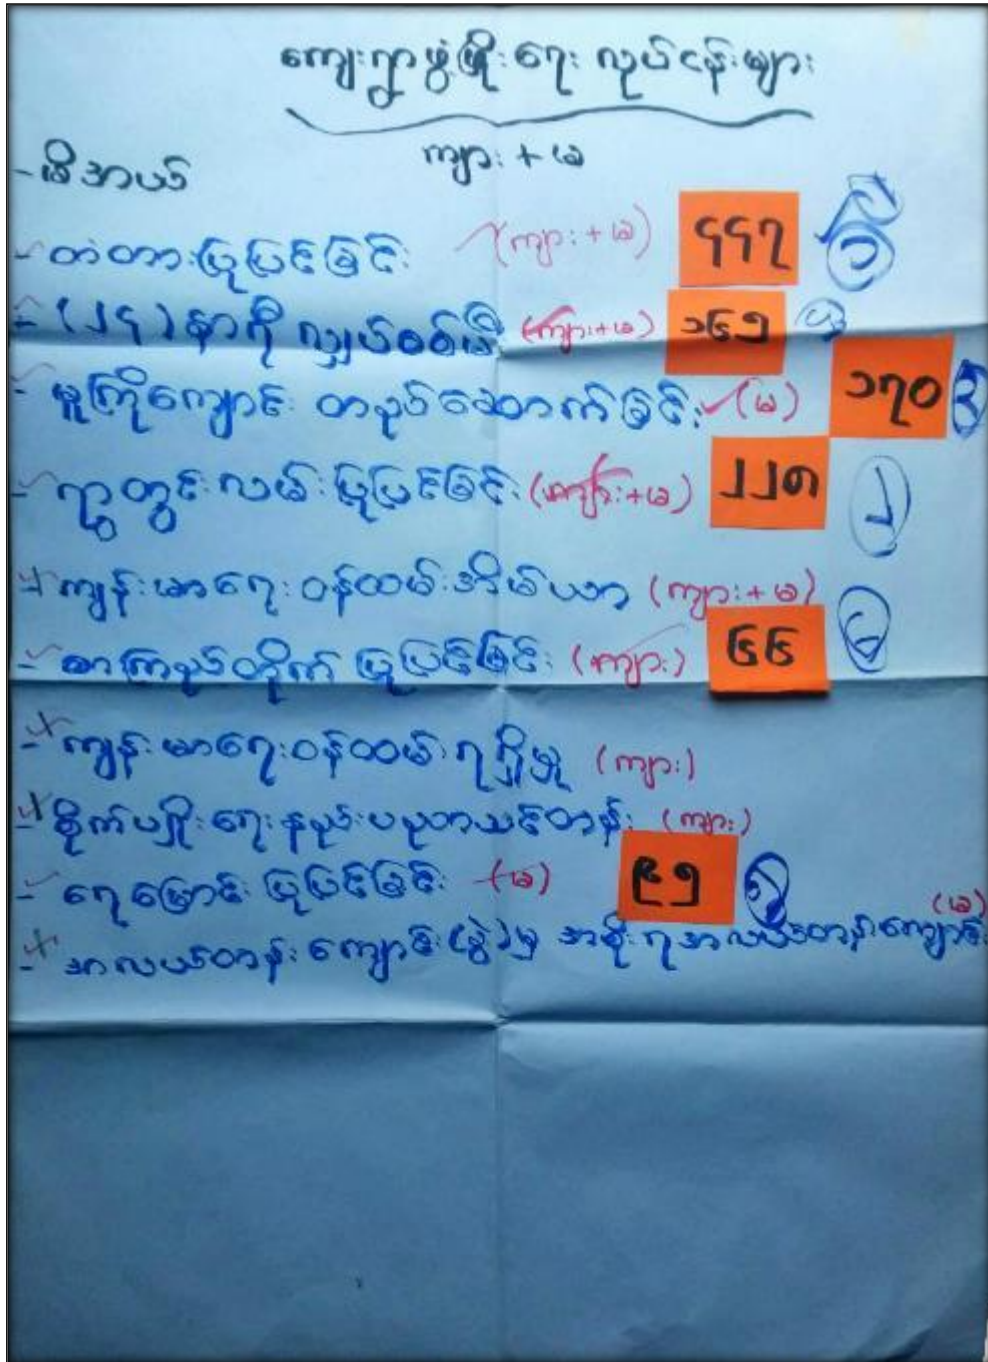 ကျေးရွာဖွံ့ဖြိုးရေး လုပ်ငန်းများ
ကျား + မ
- မိအယ်
- တံတားပြုပြင်ခြင်း (ကျား + မ) ၄၄၇ ၁
- (၂၄) နာရီ လျှပ်စစ်မီး (ကျား + မ) ၁၆၅ ၄
- မူကြိုကျောင်း တည်ဆောက်ခြင်း (မ) ၁၇၀ ၃
- ရွာတွင်းလမ်းပြုပြင်ခြင်း (ကျား + မ) ၂၂၈ ၂
- ကျန်းမာရေးဝန်ထမ်းအိမ်ယာ (ကျား + မ)
- စာကြည့်တိုက် ပြုပြင်ခြင်း (ကျား) ၆၆ ၆
- ကျန်းမာရေးဝန်ထမ်းရရှိမှု (ကျား)
- စိုက်ပျိုးရေးနည်းပညာသင်တန်း (ကျား)
- ရေမြောင်း ပြုပြင်ခြင်း (မ) ၉၅ ၅
- အလယ်တန်းကျောင်း (ခွဲ) မှ အစိုးရအလယ်တန်းကျောင်း (မ)